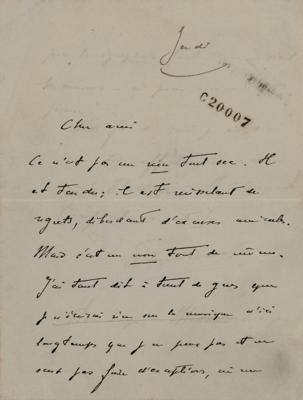 Jeudi
C20007
Cher ami
Ce n'est pas un non tout sec. Il
est tendu; il est ruisselant de
regrets, débordant d'excuses amicales.
Mais c'est un non tout de même.
J'ai tant dit à tant de gens que
je n'écrirai rien sur la musique d'ici
longtemps que je ne peux pas et ne
sais pas faire d'exceptions, même